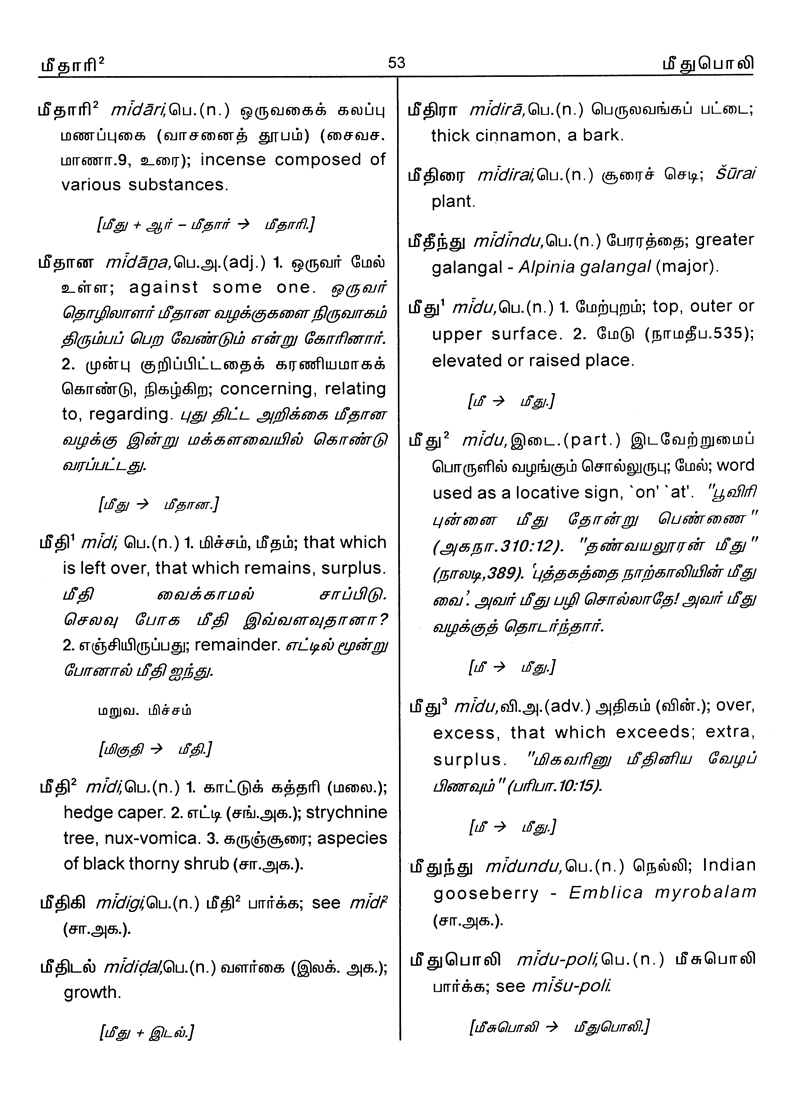 மீதாரி² 53 மீதுபொலி
மீதாரி² mīdāri,பெ.(n.) ஒருவகைக் கலப்பு
மணப்புகை (வாசனைத் தூபம்) (சைவச.
மாணா.9, உரை); incense composed of
various substances.
[மீது + ஆர் – மீதார் → மீதாரி.]
மீதான mīdāṉa,பெ.அ.(adj.) 1. ஒருவர் மேல்
உள்ள; against some one. ஒருவர்
தொழிலாளர் மீதான வழக்குகளை நிருவாகம்
திரும்பப் பெற வேண்டும் என்று கோரினார்.
2. முன்பு குறிப்பிட்டதைக் கரணியமாகக்
கொண்டு, நிகழ்கிற; concerning, relating
to, regarding. புது திட்ட அறிக்கை மீதான
வழக்கு இன்று மக்களவையில் கொண்டு
வரப்பட்டது.
[மீது → மீதான.]
மீதி¹ mīdi, பெ.(n.) 1. மிச்சம், மீதம்; that which
is left over, that which remains, surplus.
மீதி வைக்காமல் சாப்பிடு.
செலவு போக மீதி இவ்வளவுதானா?
2. எஞ்சியிருப்பது; remainder. எட்டில் மூன்று
போனால் மீதி ஐந்து.
மறுவ. மிச்சம்
[மிகுதி → மீதி.]
மீதி² mīdi,பெ.(n.) 1. காட்டுக் கத்தரி (மலை.);
hedge caper. 2. எட்டி (சங்.அக.); strychnine
tree, nux-vomica. 3. கருஞ்சூரை; aspecies
of black thorny shrub (சா.அக.).
மீதிகி mīdigi,பெ.(n.) மீதி² பார்க்க; see mīdi²
(சா.அக.).
மீதிடல் mīdiḍal,பெ.(n.) வளர்கை (இலக். அக.);
growth.
[மீது + இடல்.]
மீதிரா mīdirā,பெ.(n.) பெருலவங்கப் பட்டை;
thick cinnamon, a bark.
மீதிரை mīdirai,பெ.(n.) சூரைச் செடி; Šūrai
plant.
மீதீந்து mīdīndu,பெ.(n.) பேரரத்தை; greater
galangal - Alpinia galangal (major).
மீது¹ mīdu,பெ.(n.) 1. மேற்புறம்; top, outer or
upper surface. 2. மேடு (நாமதீப.535);
elevated or raised place.
[மீ → மீது.]
மீது² mīdu,இடை.(part.) இடவேற்றுமைப்
பொருளில் வழங்கும் சொல்லுருபு; மேல்; word
used as a locative sign, `on' `at'. "பூவிரி
புன்னை மீது தோன்று பெண்ணை"
(அகநா.310:12). "தண்வயலூரன் மீது"
(நாலடி,389). 'புத்தகத்தை நாற்காலியின் மீது
வை'. அவர் மீது பழி சொல்லாதே! அவர் மீது
வழக்குத் தொடர்ந்தார்.
[மீ → மீது.]
மீது³ mīdu,வி.அ.(adv.) அதிகம் (வின்.); over,
excess, that which exceeds; extra,
surplus. "மிகவரினு மீதினிய வேழப்
பிணவும்" (பரிபா.10:15).
[மீ → மீது.]
மீதுந்து mīdundu,பெ.(n.) நெல்லி; Indian
gooseberry - Emblica myrobalam
(சா.அக.).
மீதுபொலி mīdu-poli,பெ.(n.) மீசுபொலி
பார்க்க; see mīšu-poli.
[மீசுபொலி → மீதுபொலி.]